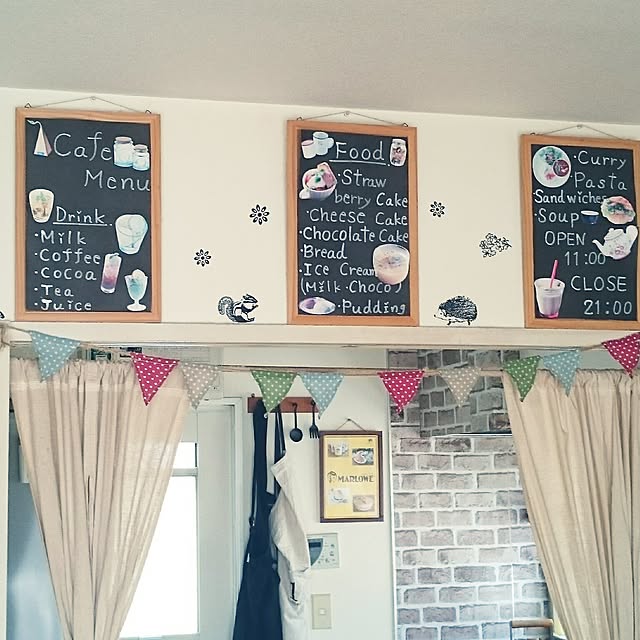 Cafe
Menu
Drink
・Milk
・Coffee
・Cocoa
・Tea
・Juice
Food
・Straw
berry Cake
・Cheese Cake
・Chocolate Cake
・Bread
・Ice Cream
(Milk・Choco)
・Pudding
・Curry
Pasta
Sandwiches
・Soup
OPEN
11:00
CLOSE
21:00
MARLOWE